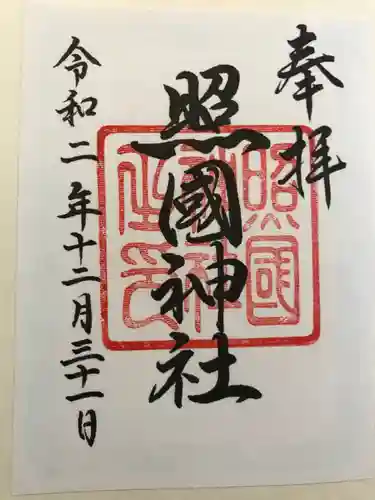 奉拝
照國神社
照國神社之印
令和二年十二月三十一日